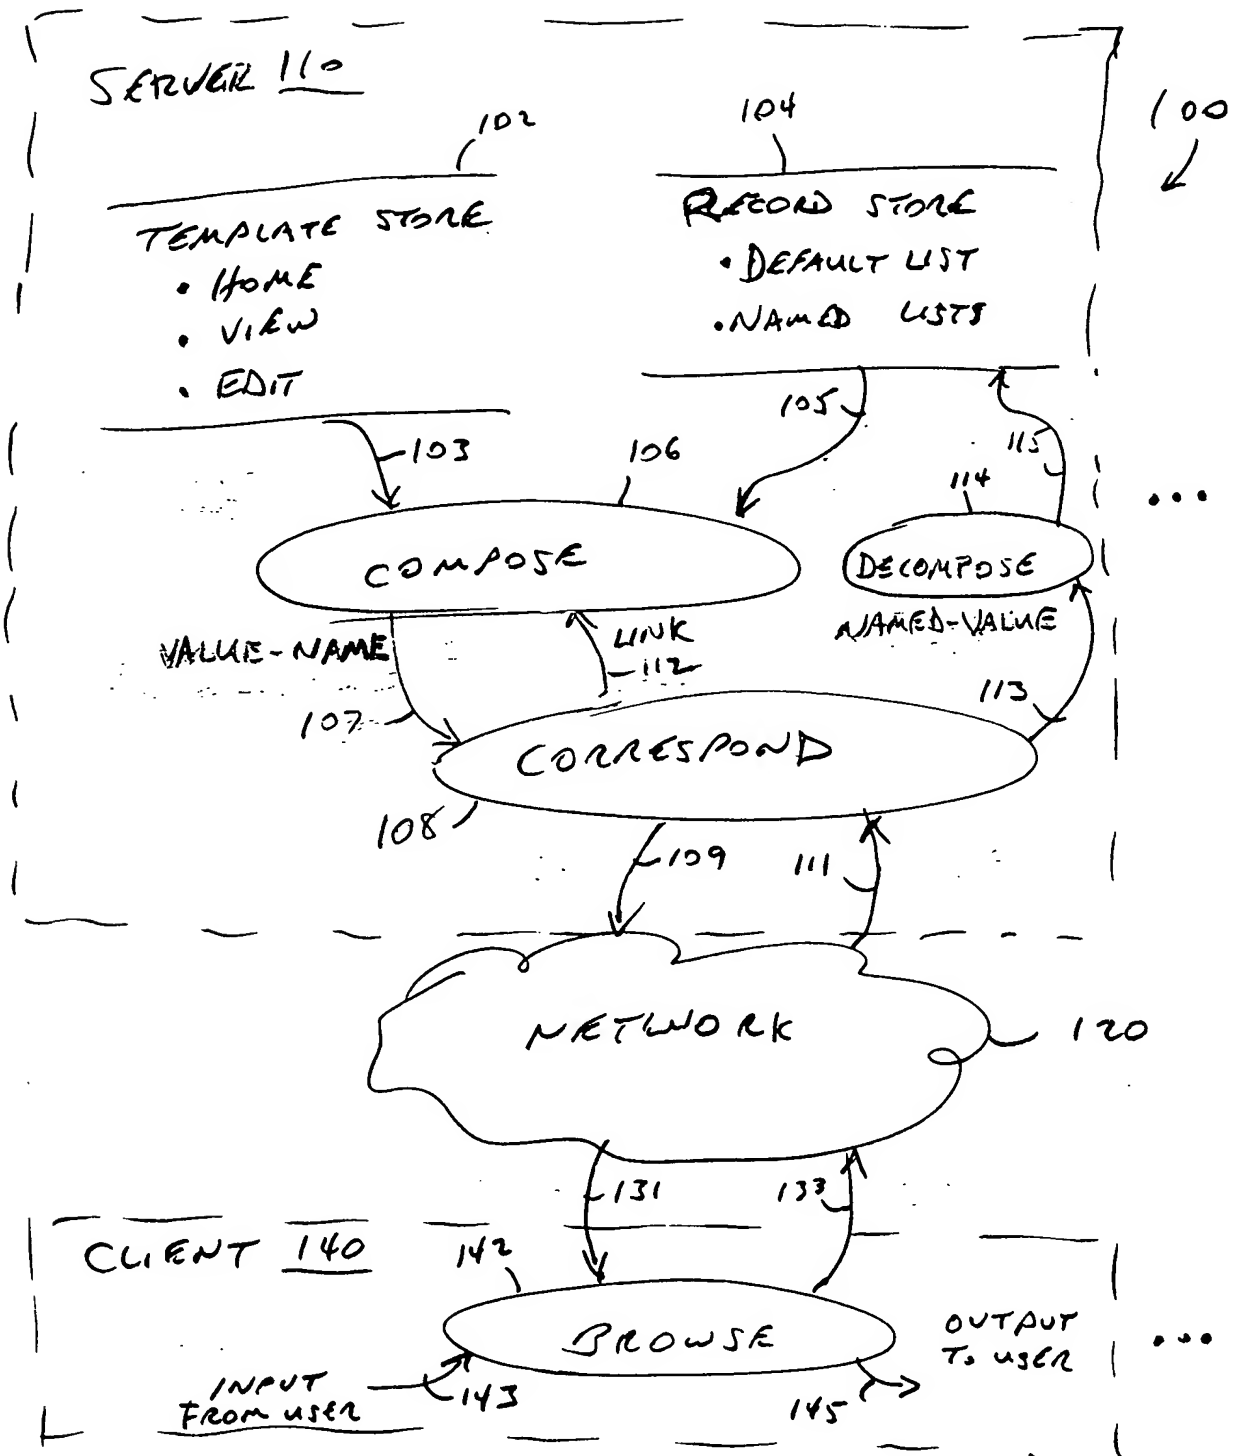 SERVER 110
100
102
104
TEMPLATE STORE
• HOME
• VIEW
• EDIT
RECORD STORE
• DEFAULT LIST
• NAMED LISTS
103
105
115
106
114
...
COMPOSE
DECOMPOSE
VALUE-NAME
LINK
112
NAMED-VALUE
107
113
CORRESPOND
108
109
111
NETWORK
120
131
133
CLIENT 140
142
BROWSE
OUTPUT
TO USER
...
INPUT
FROM USER
143
145